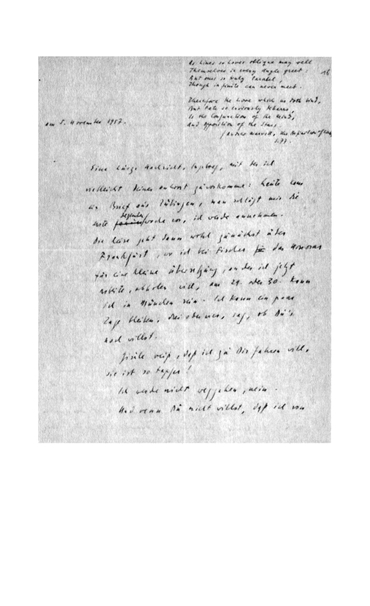 As Lines so Loves oblique may well
Themselves in every Angle greet:
But ours so truly Paralel,
Though infinite can never meet.
Therefore the Love which us doth bind,
But Fate so enviously debarrs,
Is the Conjunction of the Mind,
And Opposition of the Stars.
(Andrew Marvell, The Definition of Love
am 5. November 1957.
Eine Nachricht, mit der ich
vielleicht Deiner Antwort zuvorkomme: heute kam
ein Brief aus Tübingen, man schlägt mir die
erste Woche vor, ich werde annehmen.
Die Reise geht dann wohl zunächst über
Frankfurt, wo ich bei Fischer das Honorar
für eine kleine Übersetzung, an der ich jetzt
arbeite, abholen will, am 29. oder 30. kann
ich in München sein. Ich kann ein paar
Tage bleiben, drei oder vier, sag, ob Du's
noch willst.
Gisèle weiß, daß ich zu Dir fahren will,
sie ist so tapfer!
Ich werde nicht weggehen, nein.
Und wenn Du nicht willst, daß ich von